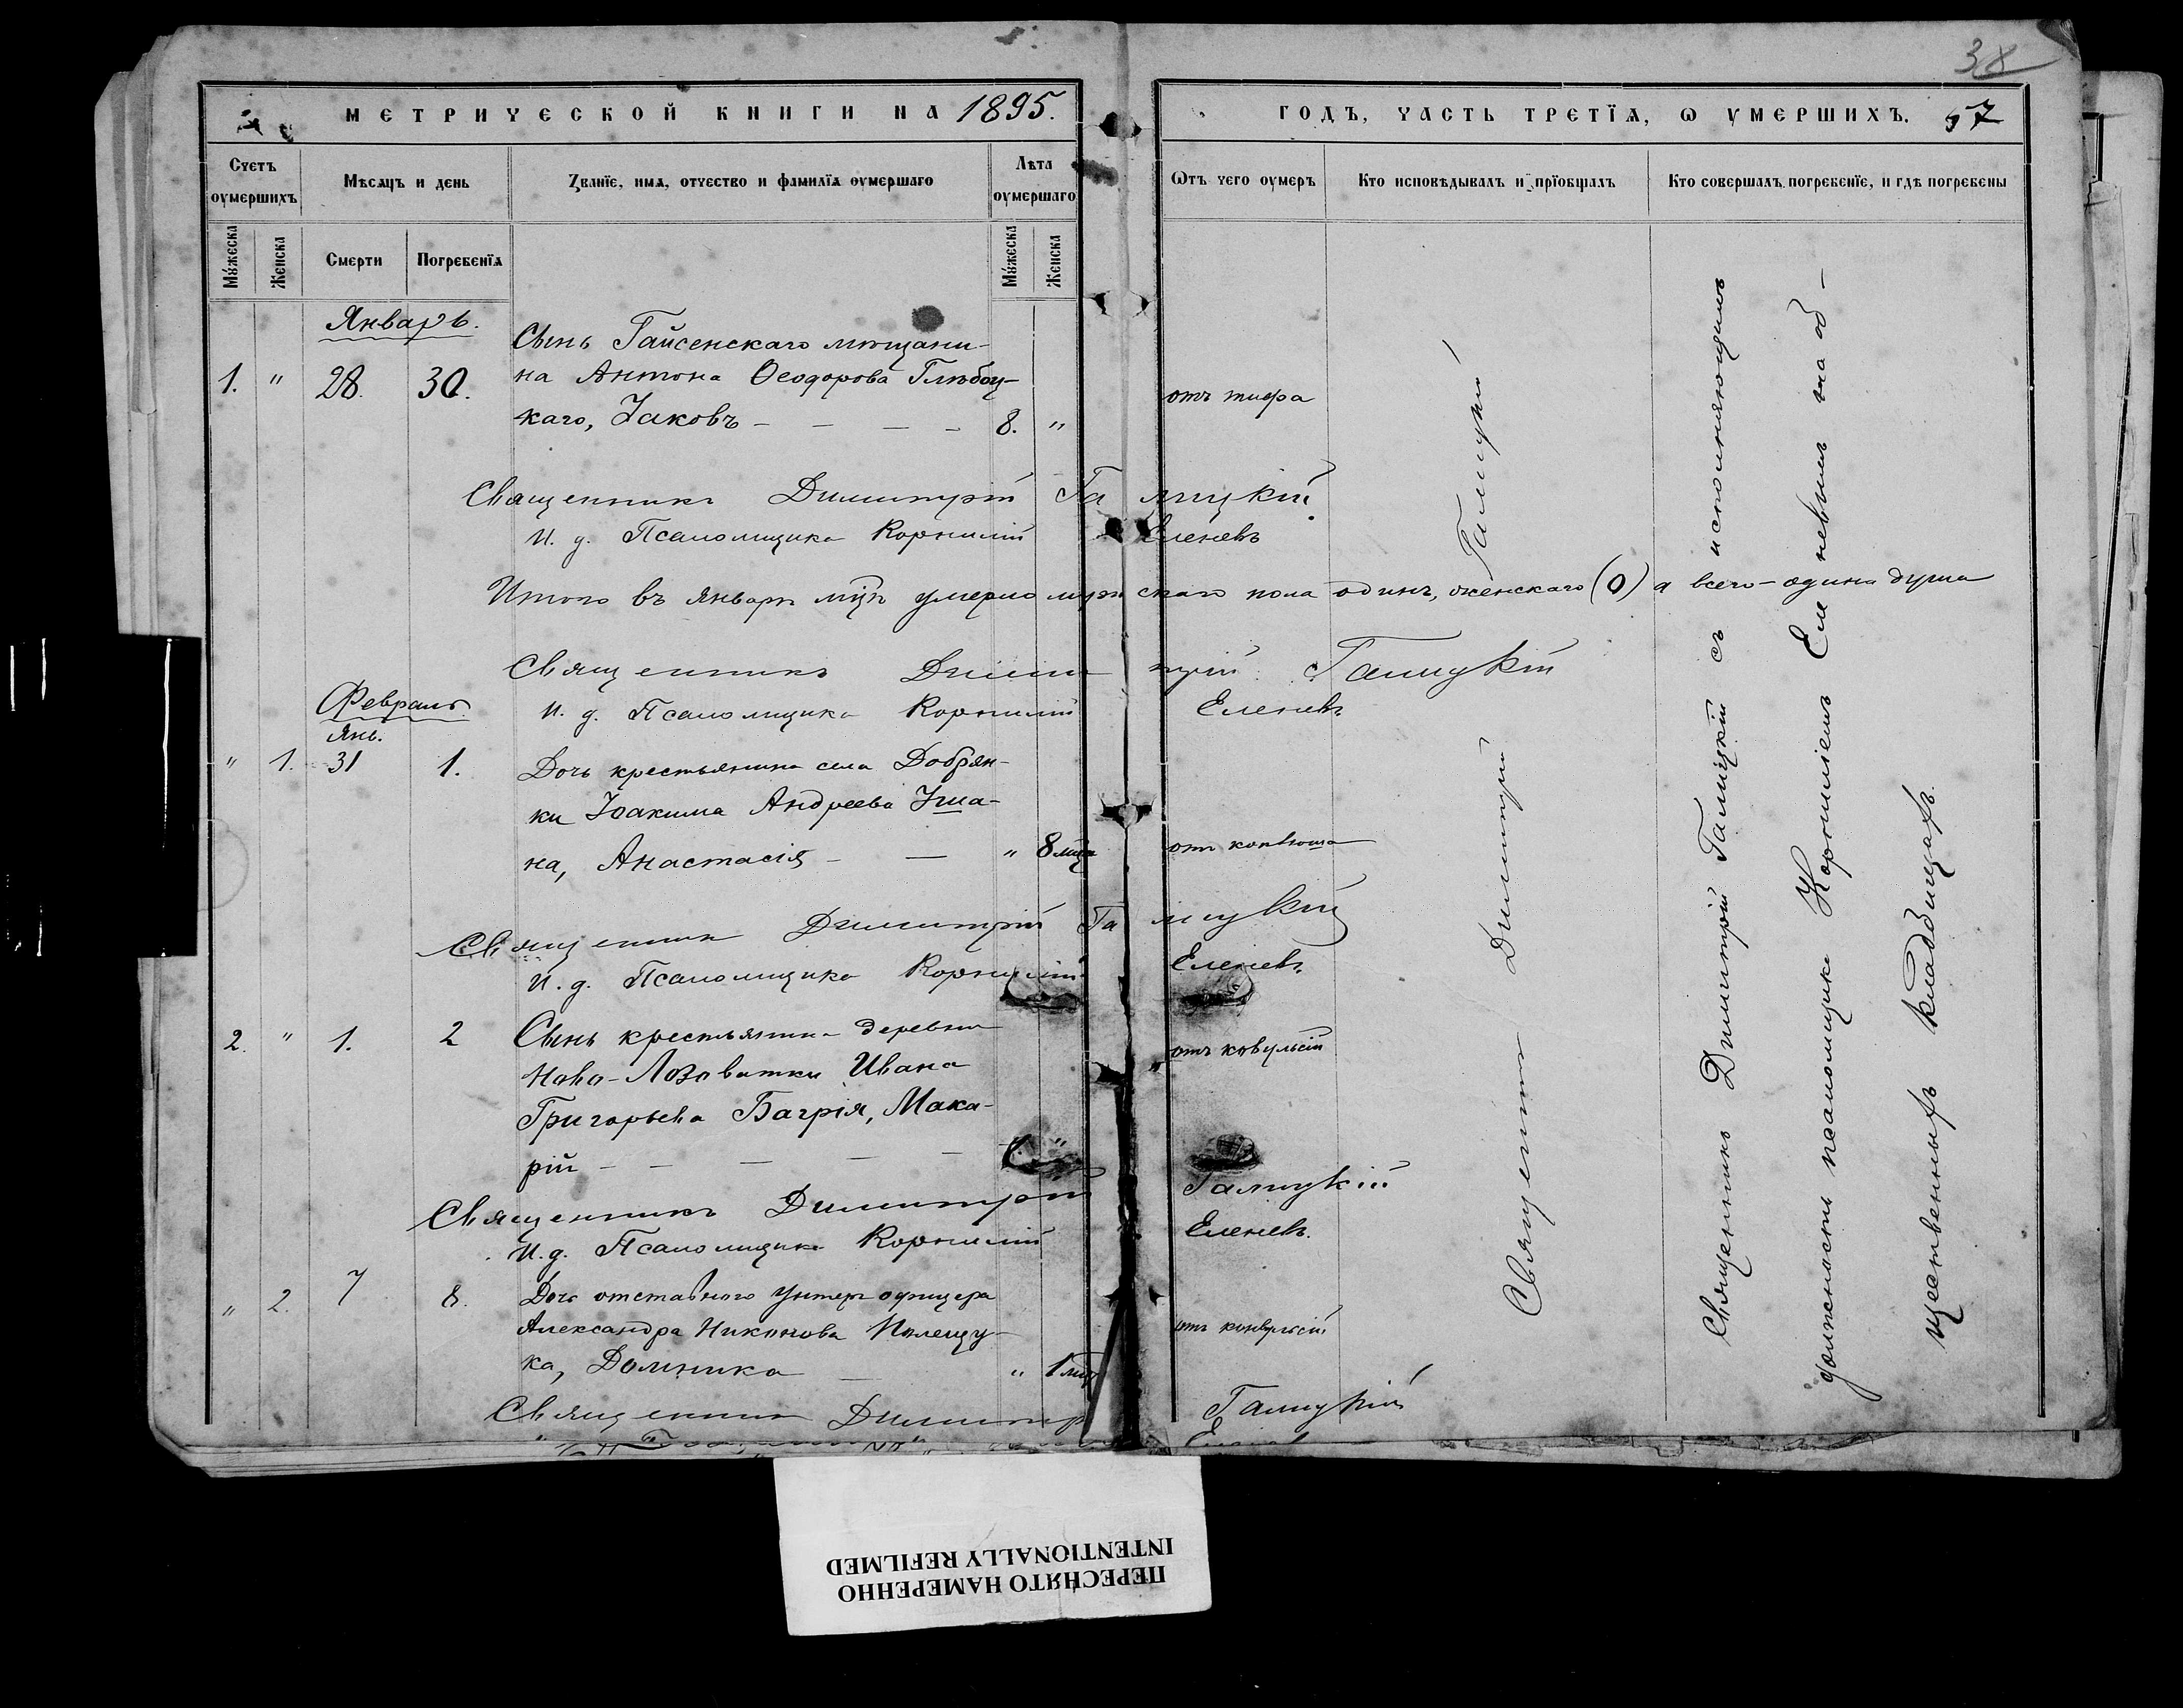 38
МЕТРИЧЕСКОЙ КНИГИ НА 1895.
ГОДЪ, ЧАСТЬ ТРЕТЇѦ, Ѡ УМЕРШИХЪ. 57
Счетъ оумершихъ
Мѣсѧцъ и день
Званїе, имѧ, отчество и фамилїѧ оумершаго
Лѣта оумершаго
Ѿтъ чего оумеръ
Кто исповѣдывалъ и прїобщалъ
Кто совершалъ погребенїе, и гдѣ погребены
Мужеска
Женска
Смерти
Погребенїѧ
Мужеска
Женска
Январь.
1. " 28. 30.
Сынъ Гайсенскаго мѣщани-
на Антона Ѳеодорова Глѣбоц-
каго, Іаковъ — — — — 8. "
отъ тифа
Священникъ Димитрій Галицкій
И. д. Псаломщика Корнилій Еленевъ
Итого въ Январѣ мцѣ умерло мужскаго пола одинъ, женскаго (0) а всего – одина душа
Священникъ Димитрій Галицкій
И. д. Псаломщика Корнилій Еленевъ
Февраль.
Янв.
" 1. 31 1.
Дочь крестьянина села Добрян-
ки Іоакима Андреева
на, Анастасія — — " 8 мцъ
отъ коклюша
Священникъ Димитрій Галицкій
И. д. Псаломщика Корнилій Еленевъ
2. " 1. 2
Сынъ крестьянина деревни
Ново-Лозоватки Ивана
Григорьева Багрія, Мака-
рій — — — — —
отъ ковульсій
Священникъ Димитрій Галицкій
И. д. Псаломщика Корнилій Еленевъ.
" 2. 7 8.
Дочь отставного унтеръ офицера
Александра Никонова Полещу-
ка, Домника — " 1 мцъ
отъ конвульсій
Священникъ Димитр Галицкій
Священникъ Димитрій Галицкій
Священникъ Димитрій Галицкій съ исполняющимъ
должность псаломщика Корниліемъ Еленевымъ на об-
щественныхъ кладбищахъ.
ПЕРЕСНЯТО НАМЕРЕННО
INTENTIONALLY REFILMED